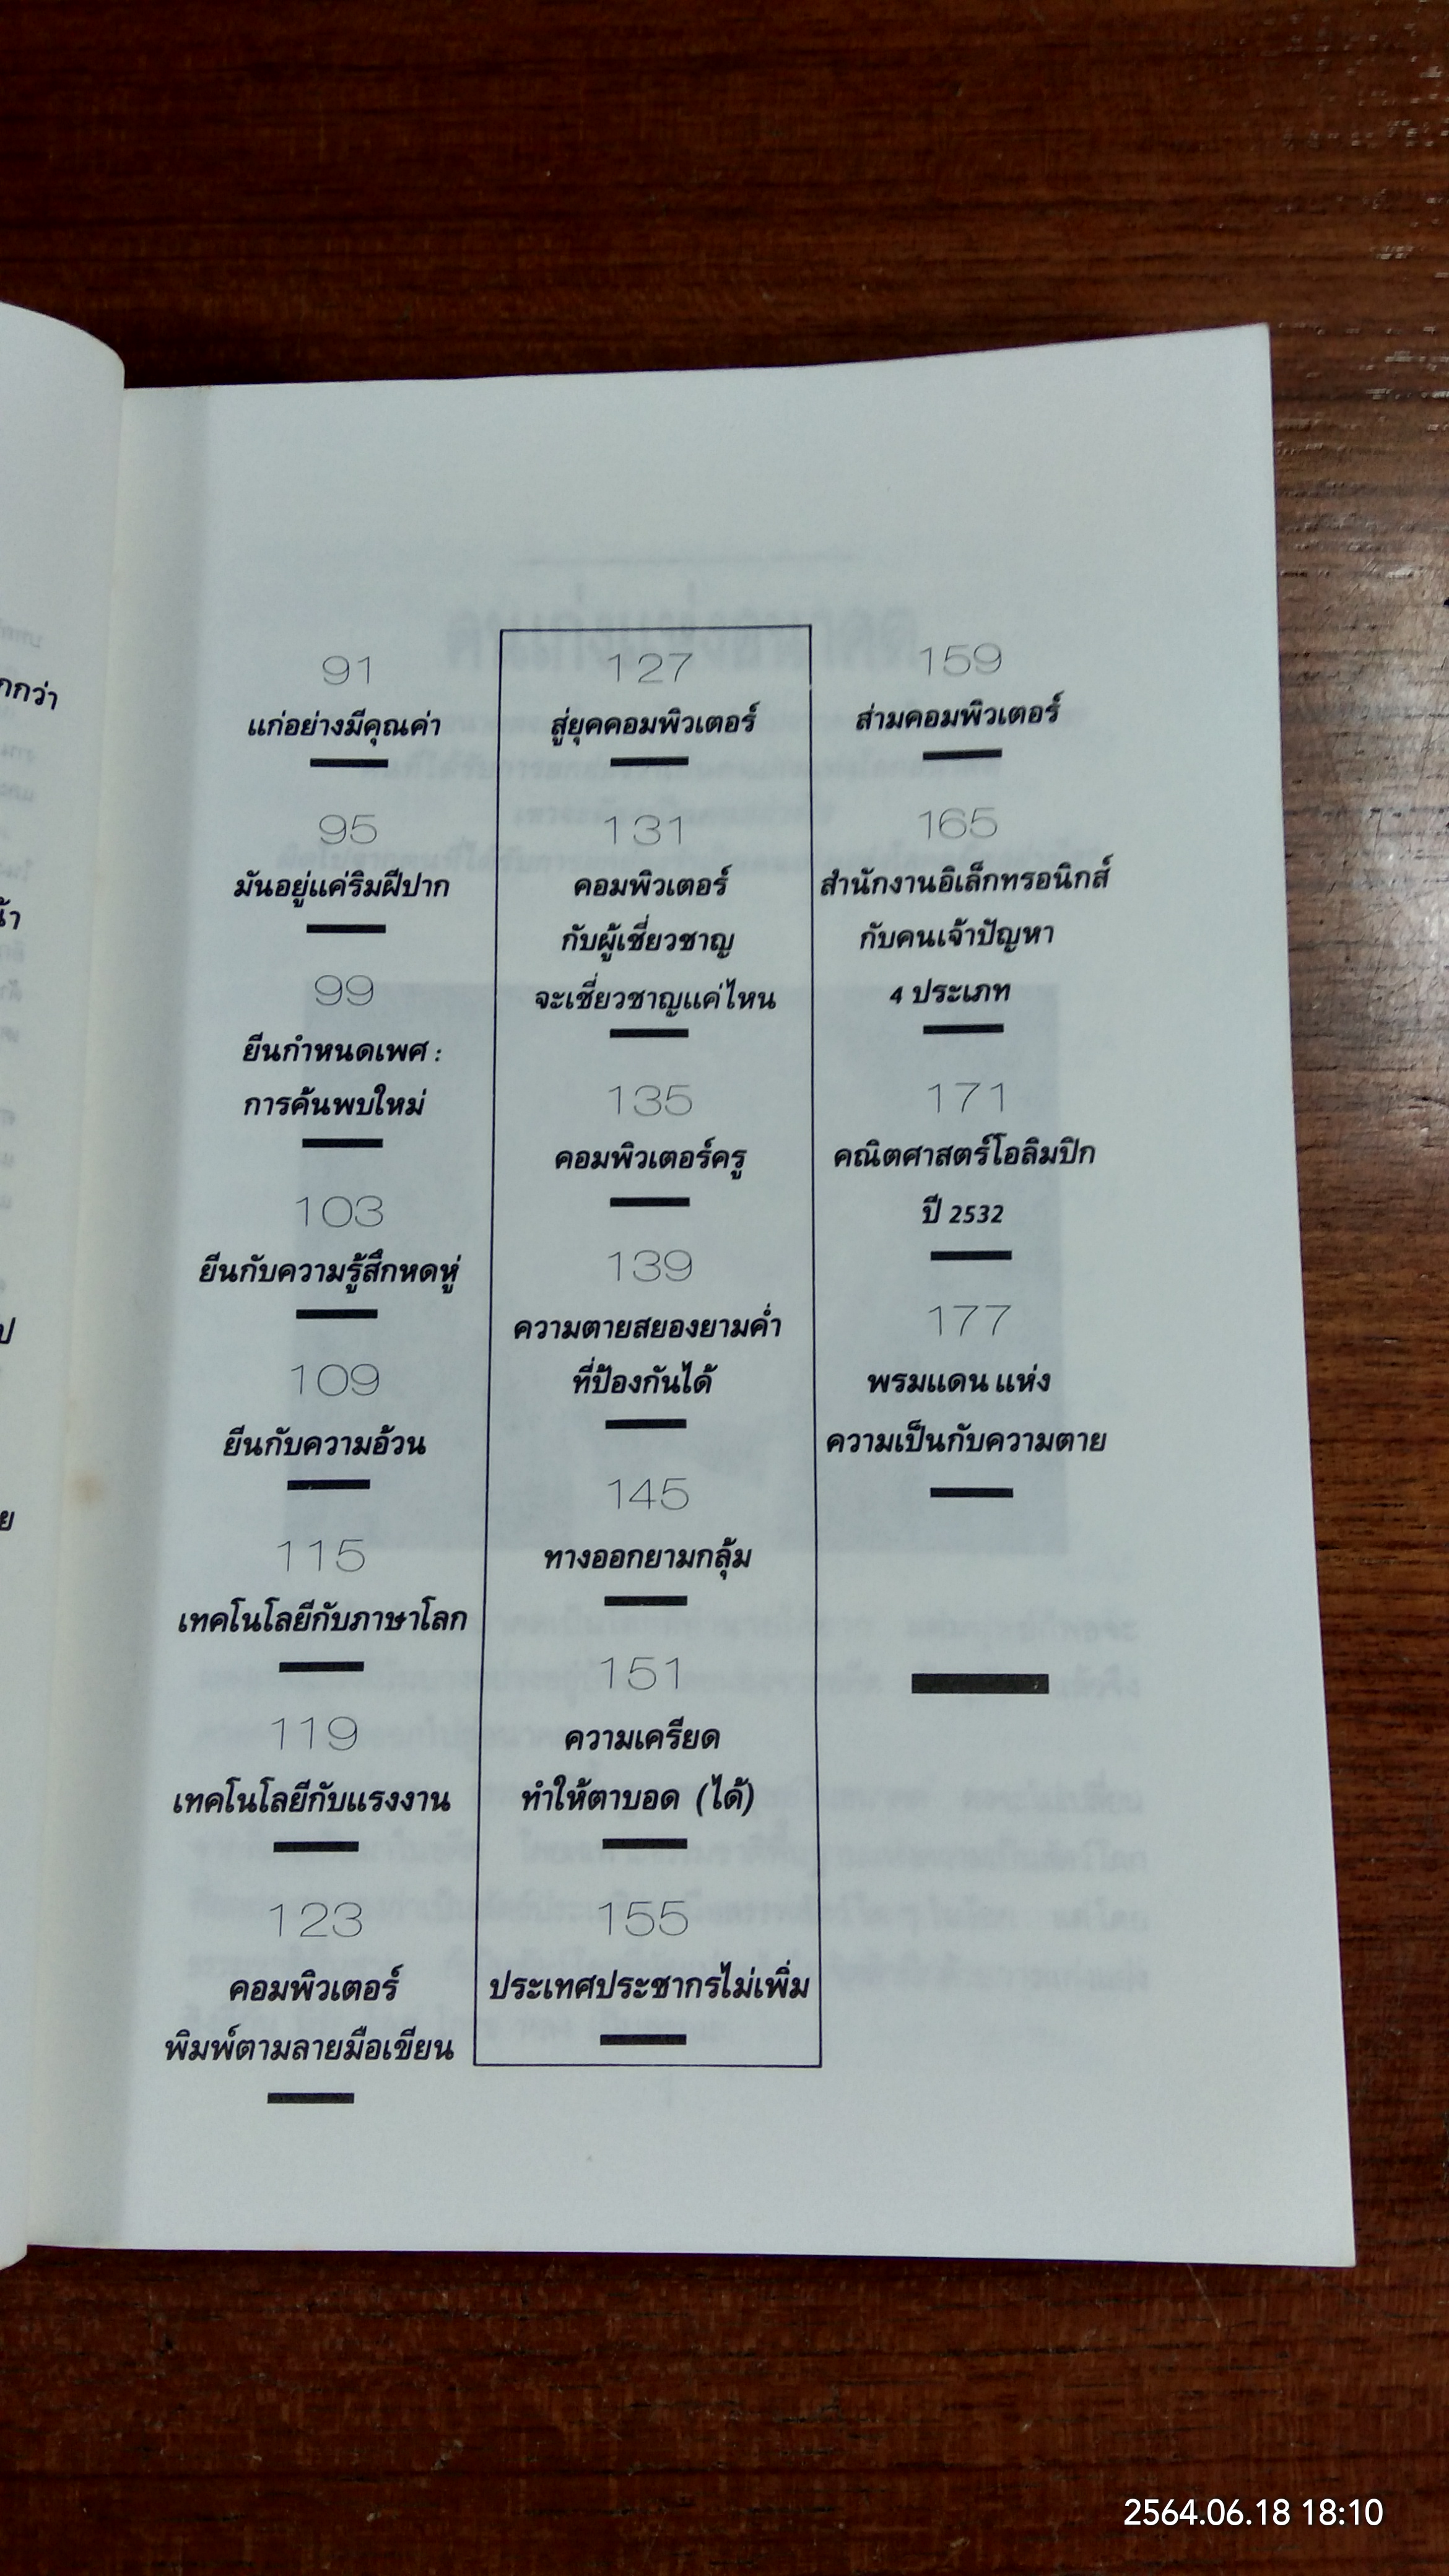 91
แก่อย่างมีคุณค่า
95
มันอยู่แค่ริมฝีปาก
99
ยีนกำหนดเพศ :
การค้นพบใหม่
103
ยีนกับความรู้สึกหดหู่
109
ยีนกับความอ้วน
115
เทคโนโลยีกับภาษาโลก
119
เทคโนโลยีกับแรงงาน
123
คอมพิวเตอร์
พิมพ์ตามลายมือเขียน
127
สู่ยุคคอมพิวเตอร์
131
คอมพิวเตอร์
กับผู้เชี่ยวชาญ
จะเชี่ยวชาญแค่ไหน
135
คอมพิวเตอร์ครู
139
ความตายสยองยามค่ำ
ที่ป้องกันได้
145
ทางออกยามกลุ้ม
151
ความเครียด
ทำให้ตาบอด (ได้)
155
ประเทศประชากรไม่เพิ่ม
159
ส่ามคอมพิวเตอร์
165
สำนักงานอิเล็กทรอนิกส์
กับคนเจ้าปัญหา
4 ประเภท
171
คณิตศาสตร์โอลิมปิก
ปี 2532
177
พรมแดน แห่ง
ความเป็นกับความตาย
2564.06.18 18:10